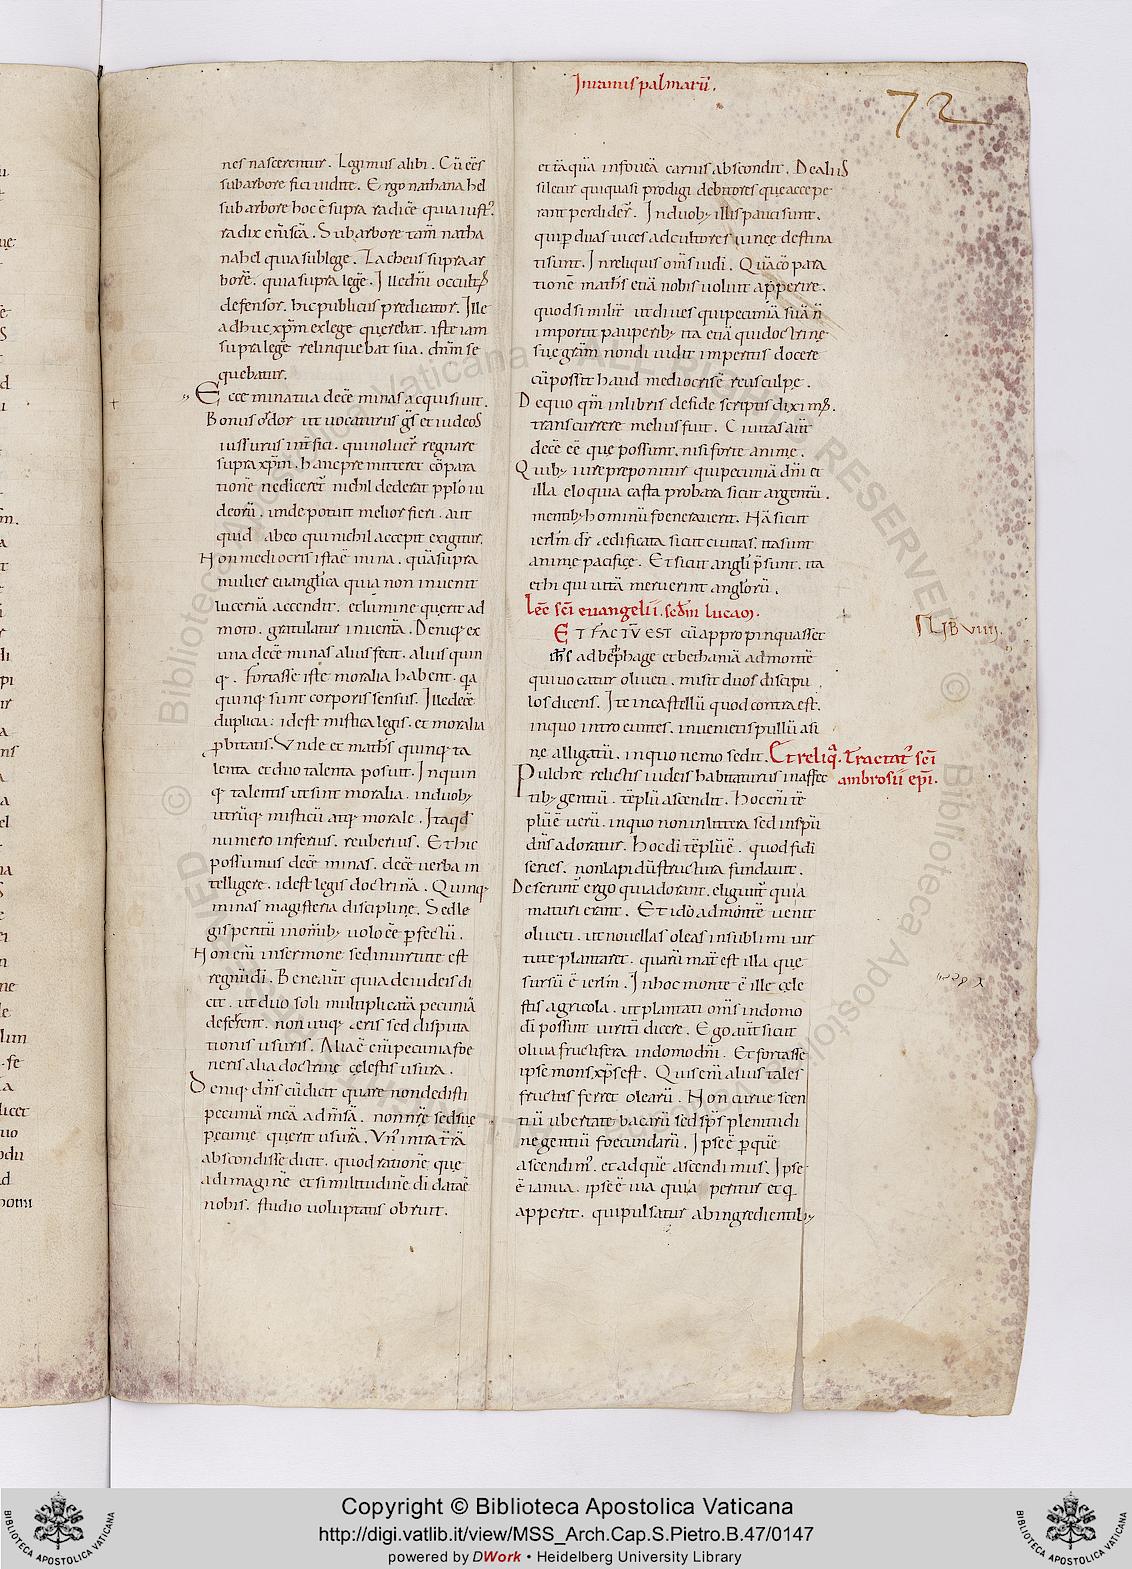 In ramis palmarũ.
72
nes nascerentur. Legimus alibi. Cũ eẽs
sub arbore fici uidi te. Ergo nathanahel
sub arbore hoc ẽ supra radicẽ quia iust᾿
radix em̃ scã. Sub arbore tam̃ natha
nahel quia sub lege. Zacheus supra ar
borẽ. quia supra legẽ. Ille dñi occult᾿
defensor. hic publicus predicator. Ille
adhuc xp̃m ex lege querebat. iste iam
supra legẽ relinquebat sua. dñm se
quebatur.
Ecce mina tua decẽ minas acquisiuit.
Bonus ordo ut uocaturus gẽs et iudeos
iussurus int̃fici. qui noluer̃ regnare
supra xp̃m. hanc premitteret cõpara
tionẽ ne diceret̃ nichil dederat pplo iu
deorũ. unde potuit melior fieri. aut
quid ab eo qui nichil accepit exigitur.
Non mediocris ista ẽ mina. quã supra
mulier euanglica quia non inuenit
lucernã accendit. et lumine querit ad
moto. gratulatur inuentã. Deniq; ex
una decẽ minas alius fecit. alius quin
q;. fortasse iste moralia habent. q̃a
quinq; sunt corporis sensus. Ille decẽ
duplicia: id est mistica legis. et moralia
p̃bitatis. Unde et math̃s quinq; ta
lenta et duo talenta posuit. In quin
q; talentis ut sint moralia. in duob;
utrũq; misticũ atq; morale. Itaqd̃
numero inferius. re uberius. Et hic
possumus decẽ minas. decẽ uerba in
telligere. id est legis doctrinã. Quinq;
minas magisteria discipline. Sed le
gis peritũ in om̃ib; uolo eẽ p̃fectũ.
Non em̃ in sermone sed in uirtute est
regnũ di. Bene aũt quia de iudeis di
cit. ut duo soli multiplicatã pecuniã
deferent. non utiq; eris sed disputa
tionis usuris. Alia ẽ em̃ pecunia foe
neris alia doctrine celestis usura.
Deniq; dñs cũ dicit quare non dedisti
pecuniã meã ad m̃sã. non nr̃e sed sue
pecunie querit usurã. Un᾿ in tã t̃rã
abscondisse dicit. quod rationẽ que
ad imaginẽ et similitudinẽ di data ẽ
nobis. studio uoluptatis obruit.
et tã quã in fouea carnis abscondit. De aliis
siletur qui quasi prodigi debitores que accepe
rant perdider̃. In duob; illis pauci sunt.
qui p duas uices ad cultores uinee destina
ti sunt. In reliquis om̃s iudi. Quã cõpara
tionẽ math̃s etiã nobis uoluit apperire.
quod similr̃ ut diues qui pecuniã suã ñ
importit pauperib; ita etiã qui doctrine
sue gram̃ nondi uidit imperitis docere
cũ possit haud mediocris ẽ reus culpe.
De quo qm̃ in libris de fide scriptis diximꝰ.
transcurrere melius fuit. Ciuitas aũt
decẽ eẽ que possunt. nisi forte anime.
Quib; iure preponitur qui pecuniã dñi et
illa eloquia casta probata sicut argentũ.
mentib; hominũ foenerauerit. Nã sicut
ierlm̃ dr̃ aedificata sicut ciuitas. ita sunt
anime pacifice. Et sicut angli p̃sunt. ita
et hi qui uitã meruerint anglorũ.
Lec̃ sc̃i euangelii. sedm̃ lucam.
ET FACTŨ EST cũ appropinquasset
ih̃s ad bephage et bethaniã ad montẽ
qui uocatur oliueti. misit duos discipu
los dicens. Ite in castellũ quod contra est.
in quo introeuntes. inuenietis pullũ asi
ne alligatũ. in quo nemo sedit. Et reliq̃. Tractat᾿ sc̃i
ambrosii epĩ.
SLIB VIIII.
Pulchre relictis iudeis habitaturus in affec
tib; gentiũ. tẽplũ ascendit. Hoc em̃ tẽ
plũ ẽ uerũ. in quo non in littera sed in spũ
dñs adoratur. Hoc di tẽplũ ẽ. quod fidi
series. non lapidũ structura fundauit.
Deserunt᾿ ergo qui adorant. eligunt᾿ qui a
maturi erant. Et ido ad montẽ uenit
oliueti. ut nouellas oleas in sublimi uir
tute plantaret. quarũ mat̃ est illa que
sursũ ẽ ierlm̃. In hoc monte ẽ ille cele
stis agricola. ut plantati om̃s in domo
di possint uiritĩ dicere. Ego aũt sicut
oliua fructifera in domo dñi. Et fortasse
ipse mons xp̃s est. Quis em̃ alius tales
fructus ferret olearũ. Non curue scen
tiũ ubertate bacarũ sed sp̃s plenitudi
ne gentiũ foecundarũ. Ipse ẽ p quẽ
ascendimꝰ. et ad quẽ ascendimus. Ipse
ẽ ianua. ipse ẽ uia quia peritur et q̃
apperit. qui pulsatur ab ingredientib;
Copyright © Biblioteca Apostolica Vaticana
http://digi.vatlib.it/view/MSS_Arch.Cap.S.Pietro.B.47/0147
powered by DWork • Heidelberg University Library